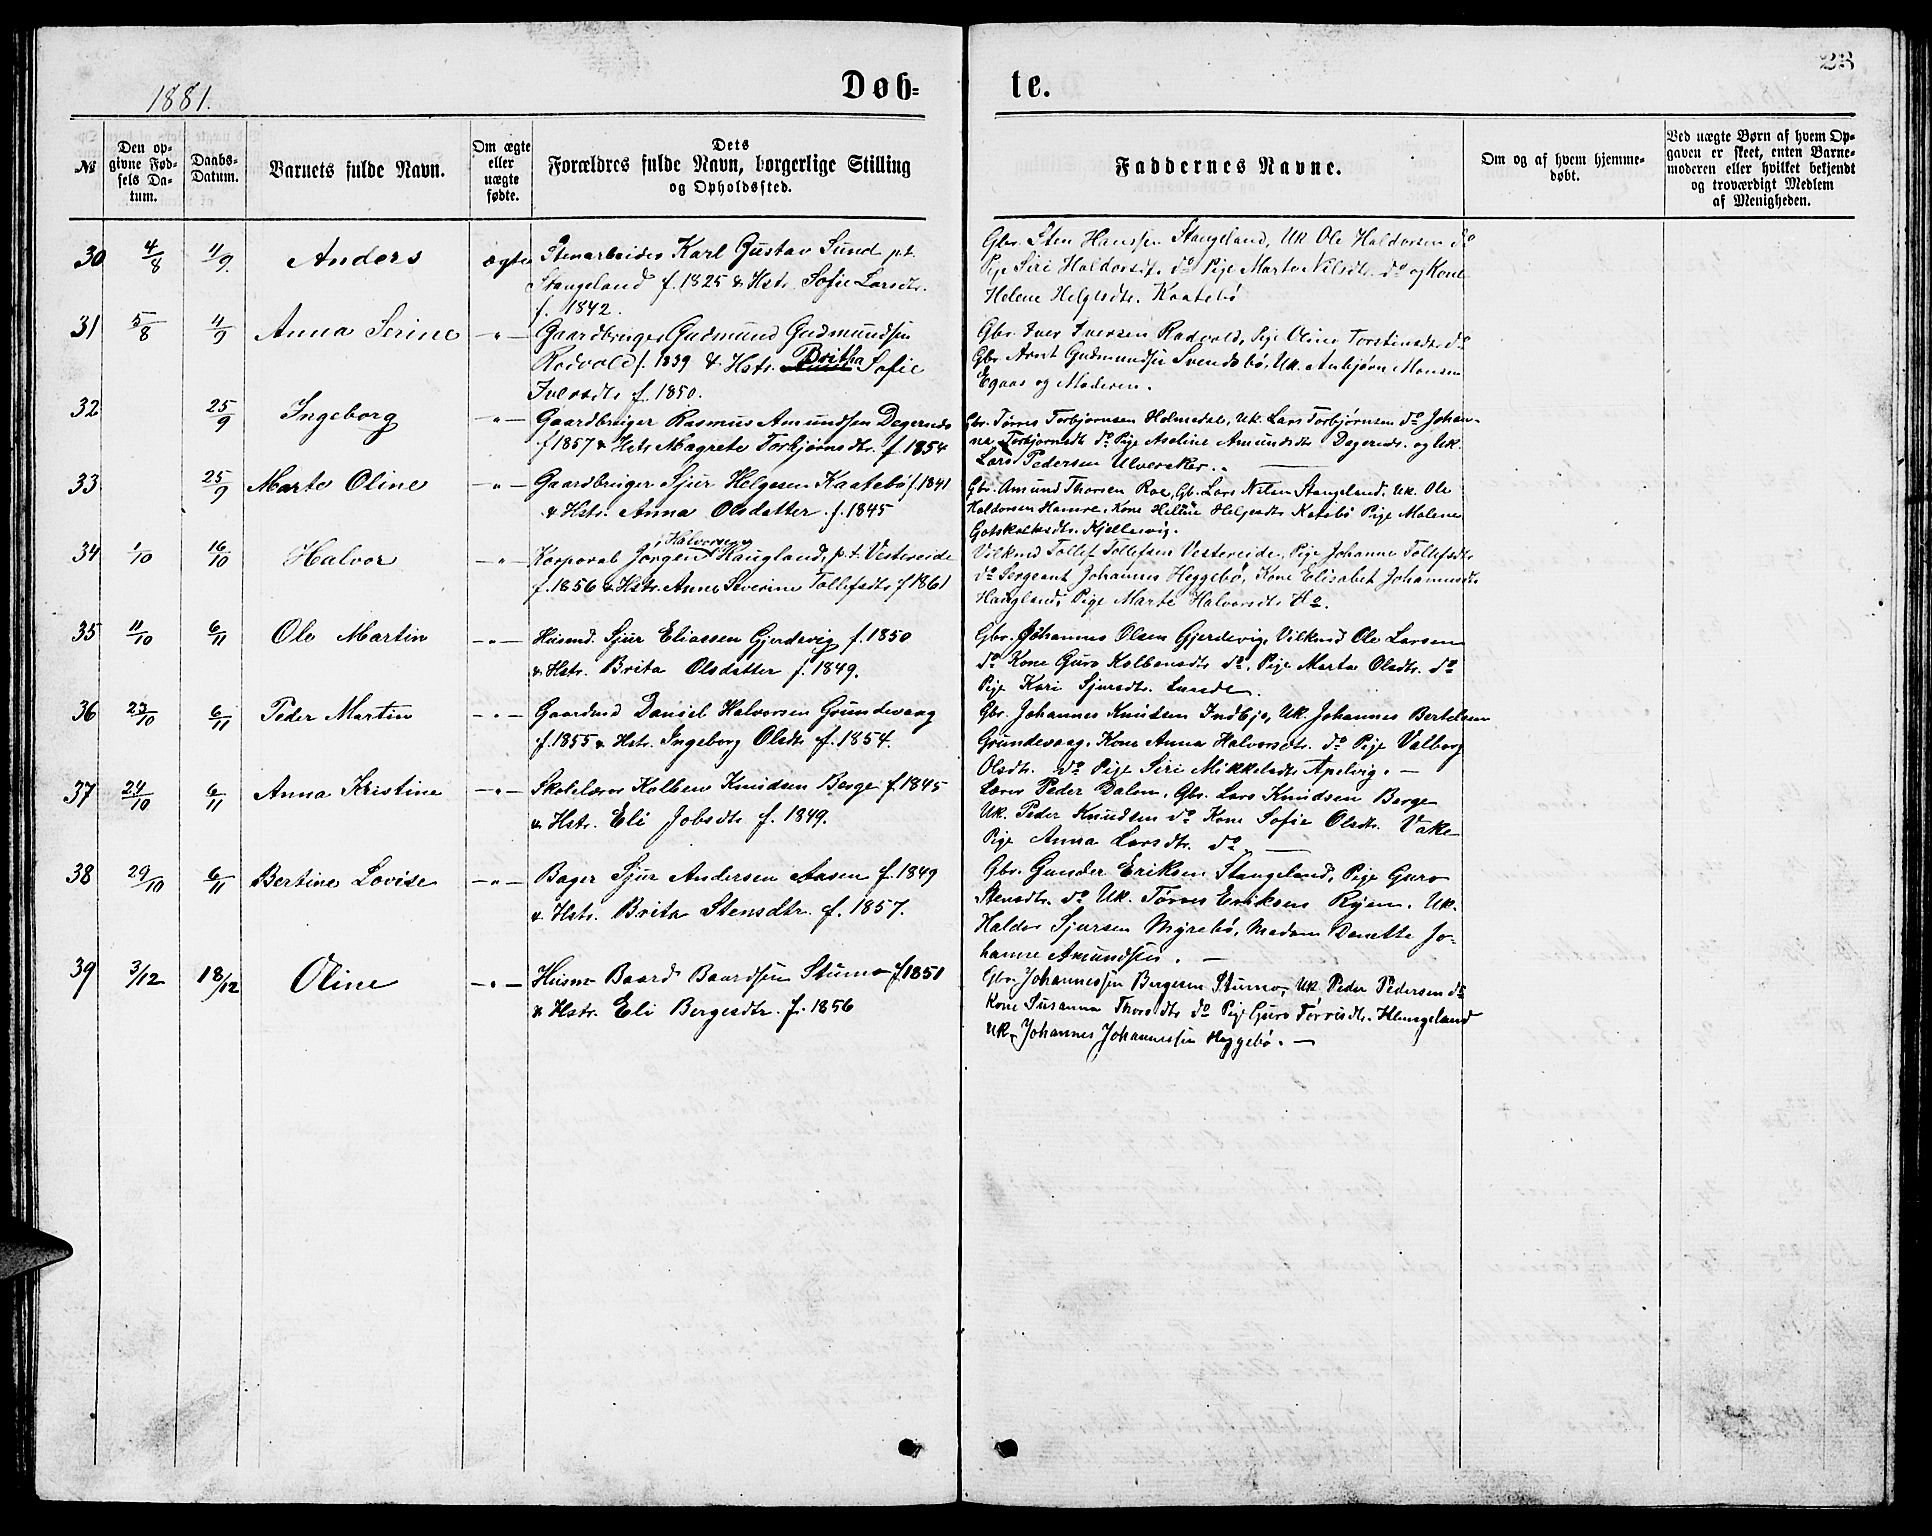 1881.
Døb=
te.
23
№
Den op-
givne Fød-
sels Da-
tum.
Daabs-
Datum.
Barnets fulde Navn.
Om ægte
eller
uægte
fødte.
Dets
Forældres fulde Navn, borgerlige Stilling
og Opholdssted.
Faddernes Navne.
Om og af hvem hjemme-
døbt.
Ved uægte Børn af hvem Op-
gaven er skeet, enten Barne-
moderen eller hvilket bekjendt
og troværdigt Medlem
af Menigheden.
30 4/8 11/9. Anders ægte Stenarbeider Karl Gustav Sund p.t.
Stangeland f. 1825 & Hstr. Sofie Larsdtr.
f. 1842.
Gbr. Sten Hanssen Stangeland, Uk. Ole Haldorsen do
Pige Siri Haldorsdtr. do Pige Marta Nilsdtr. do og Kone
Helene Helgesdtr. Kaatebø
31 5/8 11/9 Anna Serine -"- Gaardbruger Gudmund Gudmundsen
Rodvold f. 1839 & Hstr. Britha Sofie
Iversdtr f. 1850.
Gbr. Iver Iversen Rodvold, Pige Oline Torstinsdtr do
Gbr. Arnt Gudmundsen Svendsbø, Uk. Anbjørn Monsen
Egaas og Moderen.
32 25/9 Ingeborg -"- Gaardbruger Rasmus Amundsen Degernes
f 1857 & Hstr Magrete Torbjørnsdtr. f 1854
Gbr. Tørres Torbjørnsen Holmedal, Uk. Lars Torbjørnsen do Johan-
na Torbjørnsdtr do Pige Aseline Amundsdtr Degernes. og Uk.
Lars Pedersen Ulveraker.
33 25/9 Marte Oline -"- Gaardbruger Sjur Helgesen Kaatebø f. 1841
& Hstr. Anna Olsdatter f. 1845
Gbr. Amund Thorsen Roe, Gb. Lars Nilsen Stangeland. Uk. Ole
Haldorsen Hamre, Kone Helene Helgesdtr Katebø Pige Malene
Gotskalksdtr. Kjellesvig.
34 1/10 16/10 Halvor -"- Korporal Jørgen Halvorsen Haugland, p.t. Vestereide
f. 1856 & Hstr. Anne Severine Tollefsdtr f 1861
Vilkmd Tollef Tollefsen Vestereide, Pige Johanne Tollefsdtr.
do Sergeant Johannes Heggebø, Kone Elisabet Johannesdtr
Haugland, Pige Marte Halvorsdtr. Ho.
35 11/10 6/11 Ole Martin -"- Husmd. Sjur Eliassen Gjerdevig f. 1850
& Hstr. Brita Olsdatter f. 1849.
Gbr. Johannes Olsen Gjerdevig, Vilkmd Ole Larsen
do Kone Guro Kolbensdtr do, Pige Marta Olsdtr. do
Pige Kari Sjursdtr. Lunde.
36 23/10 6/11 Peder Martin -"- Gaardmd Daniel Halvorsen Grundevaag
f. 1855 & Hstr. Ingeborg Olsdtr f. 1854.
Gbr. Johannes Knutsen Indbjo, Uk. Johannes Bertelsen
Grundevaag, Kone Anna Halvorsdtr. do Pige Valborg
Olsdtr. do Pige Siri Mikkelsdtr Apelvig.
37 24/10 6/11 Anna Kristine -"- Skolelærer Kolben Knudsen Berge f. 1845
& Hstr. Eli Jobsdtr f. 1849.
Lærer Peder Dalen, Gbr. Lars Knudsen Berge
Uk. Peder Knudsen do Kone Sofie Olsdtr. Vake
Pige Anna Larsdtr. do
38 29/10 6/11 Bertine Lovise -"- Bager Sjur Andersen Aasen f. 1849
& Hstr. Brita Stensdtr. f. 1857.
Gbr. Gunder Eriksen Stangeland, Pige Guro
Stensdtr. do Uk. Tørres Eriksen Ryen. Uk.
Haldor Sjursen Myrebø, Madam Danette Jo-
hanne Amundsen.
39 3/12 18/12 Oline -"- Husm Baard Baardsen Stumo f. 1851
& Hstr. Eli Bergesdtr. f. 1856
Gbr. Johannessen Bergesen Stumo, Uk. Peder Pedersen do
Kone Susanna Thorsdtr do Pige Guro Torrisdtr. Hemgeland
Uk. Johannes Johannessen Heggebø.